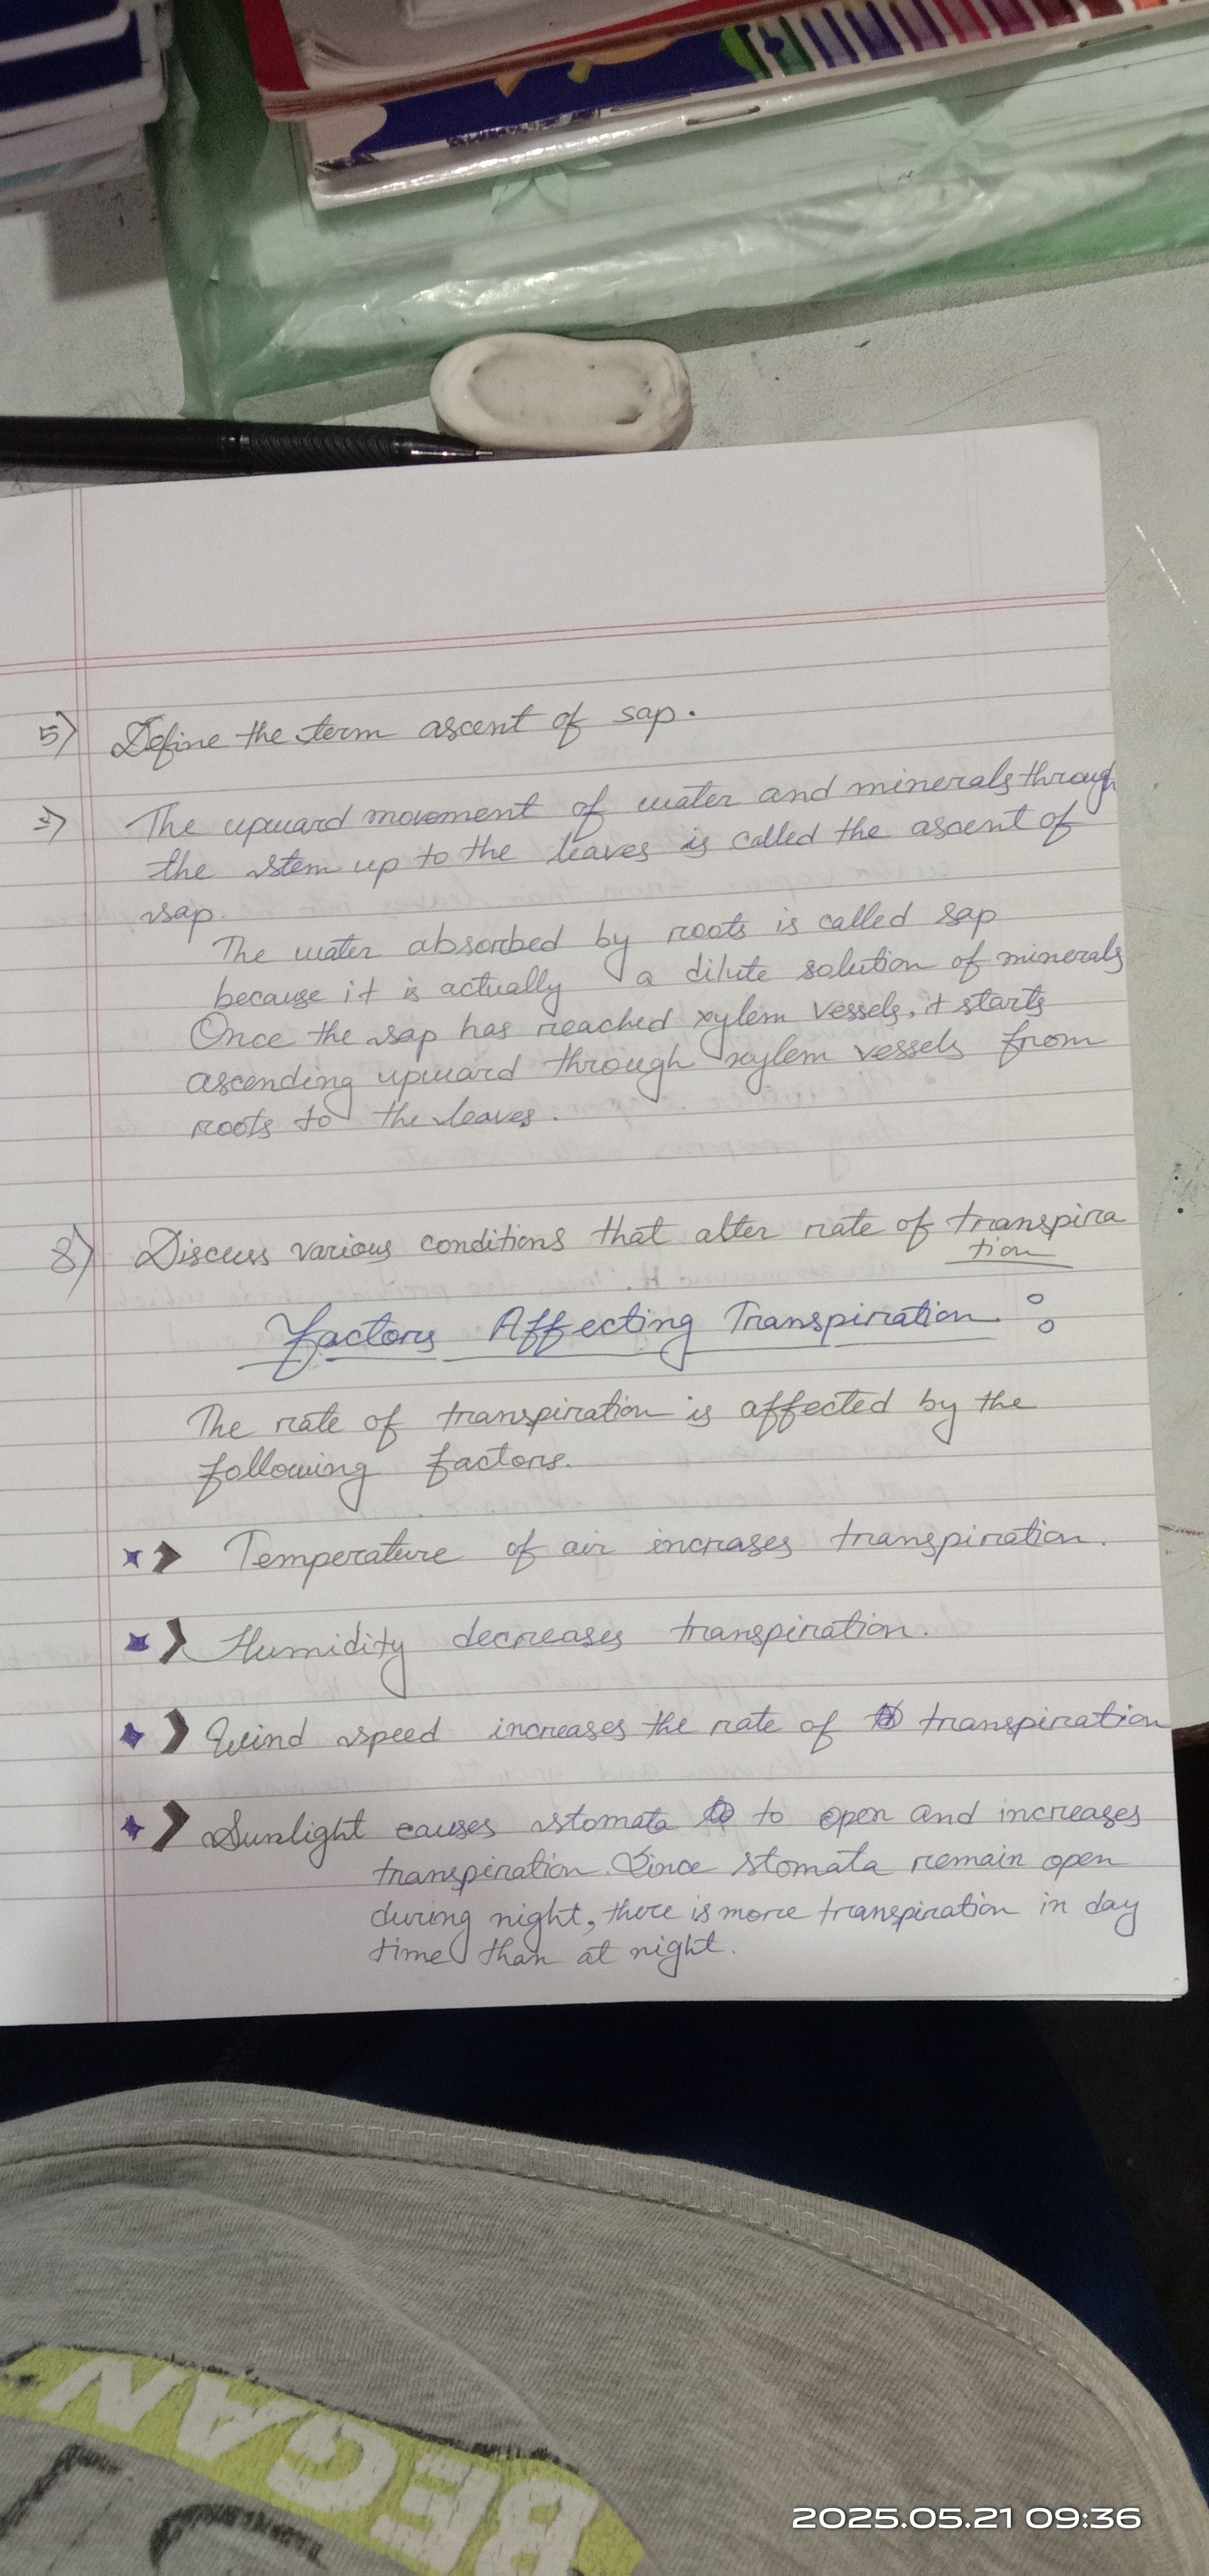 5) Define the term ascent of sap.
=> The upward movement of water and minerals through
the stem up to the leaves is called the ascent of
sap.
The water absorbed by roots is called sap
because it is actually a dilute solution of minerals
Once the sap has reached xylem vessels, it starts
ascending upward through xylem vessels from
roots to the leaves.
8) Discuss various conditions that alter rate of transpira
tion
Factors Affecting Transpiration :
The rate of transpiration is affected by the
following factors.
Temperature of air increases transpiration.
Humidity decreases transpiration.
Wind speed increases the rate of transpiration
Sunlight causes stomata to open and increases
transpiration. Since stomata remain open
during night, there is more transpiration in day
time than at night.
BEGAN
2025.05.21 09:36